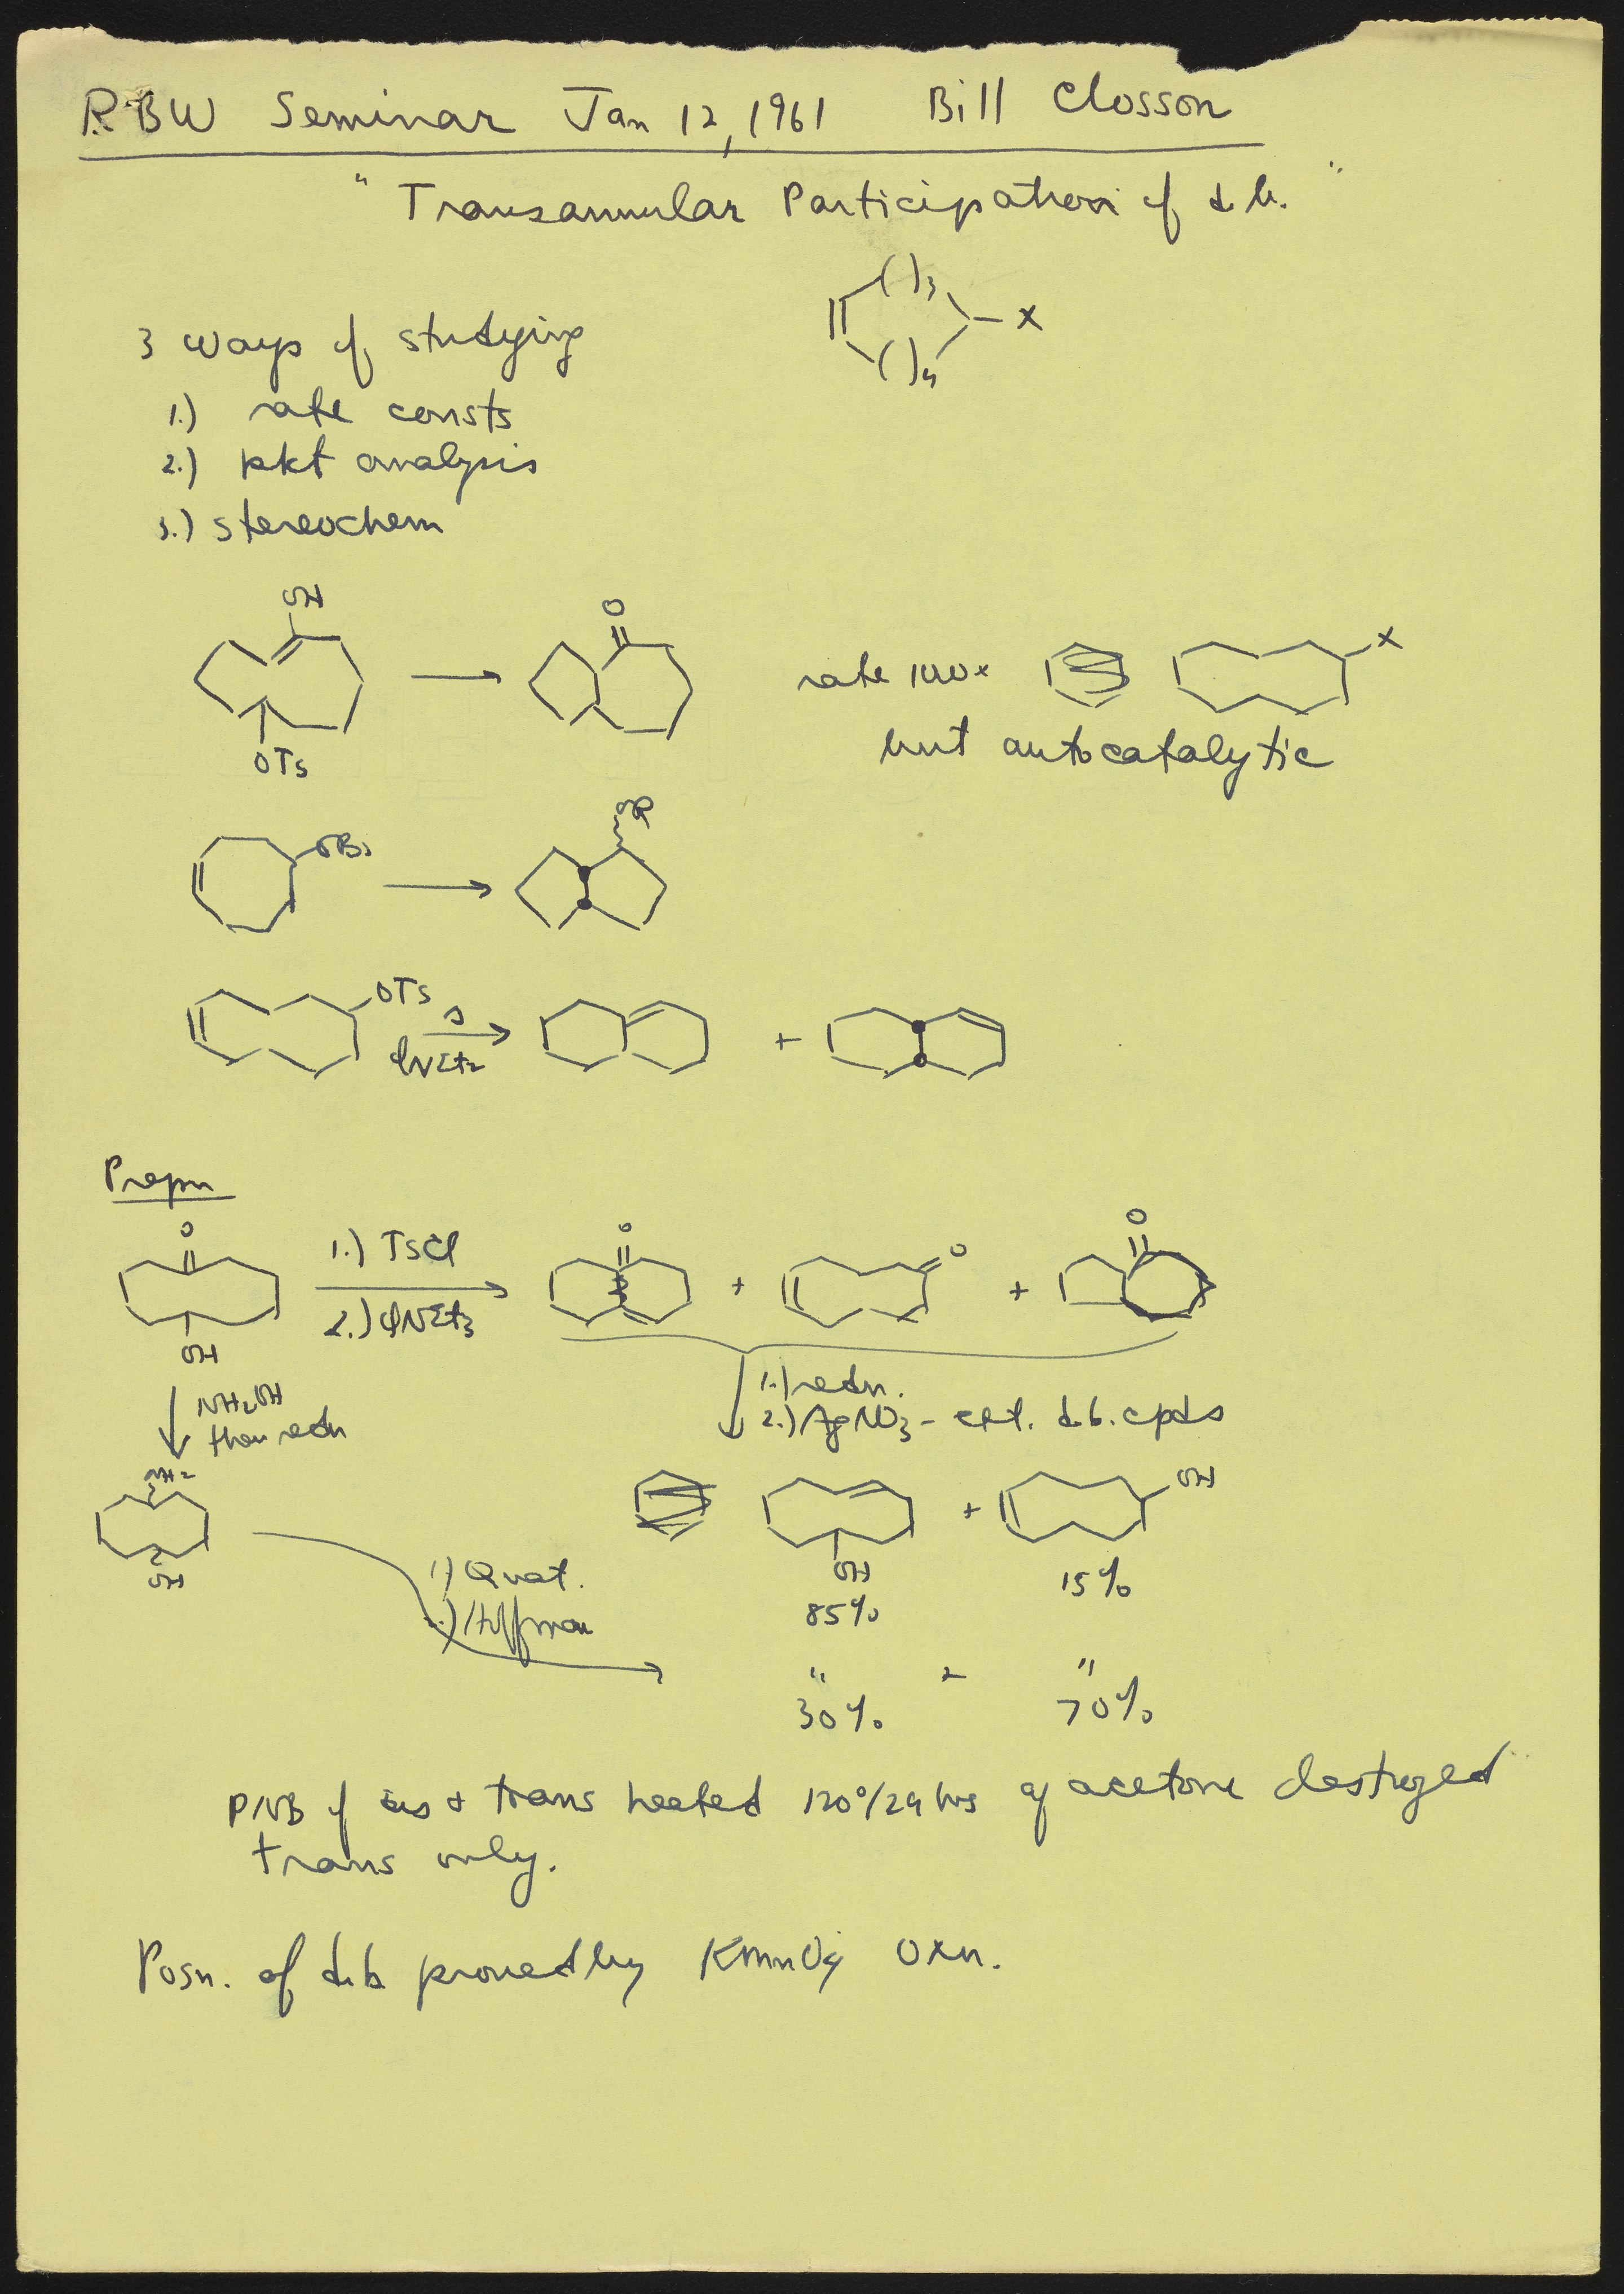 RBW Seminar Jan 12, 1961 Bill Closson
"Transannular Participation of d.b."
( )3
X
( )4
3 ways of studying
1.) rate consts
2.) pkt analysis
3.) stereochem
OH
O
OTs
rate 100x
X
but autocatalytic
OBs
OR
OTs
Δ
ΦNEt2
+
Prepn
O
OH
1.) TsCl
2.) ΦNEt3
O
+
O
+
O
NH2OH
then redn
1.) redn.
2.) AgNO3 - ext. d.b. cpds
NH2
OH
OH
85%
+
OH
15%
1.) Quat.
2.) Hoffman
"
30%
"
70%
PNB of cis & trans heated 120°/24 hrs aq acetone destroyed
trans only.
Posn. of d.b. proved by KMnO4 oxn.